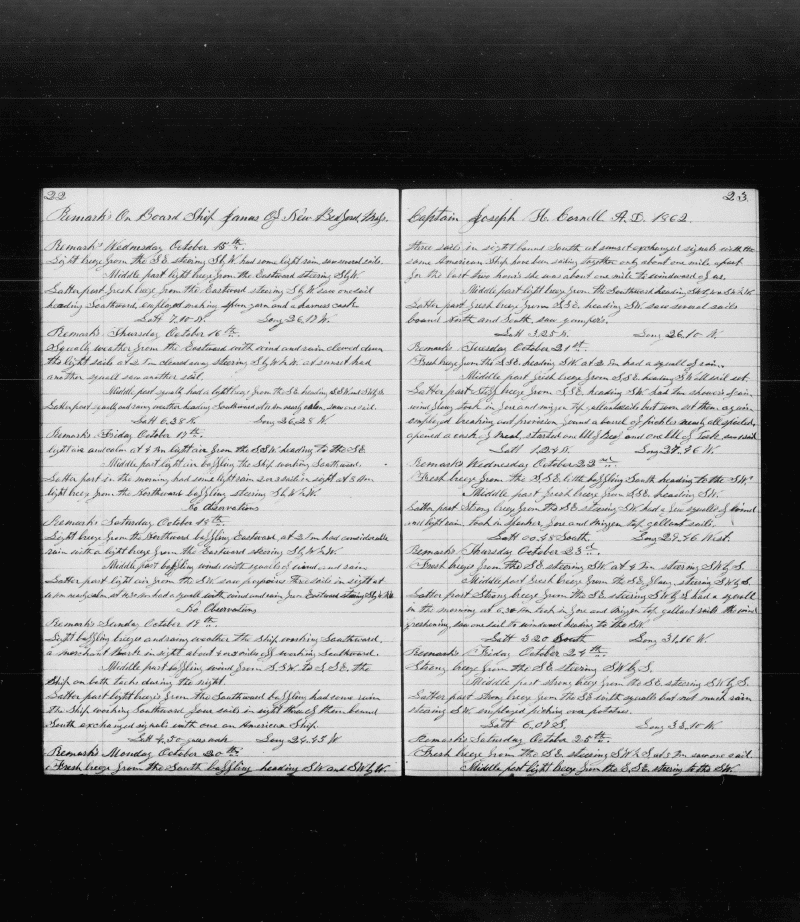 22
Remarks On Board Ship Janus Of New Bedford Mass.
Remarks Wednesday October 15th
Light breeze from the S.E. steering SbyW had some light rain saw several sails.
Middle part light breeze from the Eastward steering SbyW.
Latter part fresh breeze from the Eastward steering SbyW saw one sail
heading Southward, employed making spun yarn and a harness cask
Latt 7.10 N. Long 26.17 W.
Remarks Thursday October 16th
Squally weather from the Eastward with wind and rain clewed down
the light sails at 2 Pm cleared away steering at sunset had
another squall saw another sail.
Middle part squally had a light breeze from the S.E. heading
Latter part squally and rainy weather heading Southward nearly calm, saw one sail.
Latt 6.28 N. Long 26.28 W.
Remarks Friday October 17th
light air and calm at 4 Pm light air from the S.S.W. heading to the S.E.
Middle part light air baffling the Ship working Southward.
Latter part in the morning had some light rain 2 or 3 sails in sight at 8 Am
light breeze from the Northward baffling steering
No Observations
Remarks Saturday October 18th
Light breeze from the Northward baffling Eastward, at 2 Pm had considerable
rain with a light breeze from the Eastward steering
Middle part baffling winds with squalls of wind and rain
Latter part light air from the S.W. saw porpoises three sails in sight at
nearly calm at had a squall with wind and rain from Eastward steering
No Observations
Remarks Sunday October 19th
Light baffling breezes and rainy weather the Ship working Southward,
a merchant Bark in sight about 4 miles off working Southward.
Middle part baffling wind from S.S.W. to S.S.E. the
Ship on both tacks during the night.
Latter part light breeze from the Southward baffling had some rain
the Ship working Southward four sails in sight three of them bound
South exchanged signals with one an American Ship.
Latt 4.50 Long 24.43 W
Remarks Monday October 20th
Fresh breeze from the South baffling heading S.W. and SWbyW.
23
Captain Joseph H. Cornell A.D. 1862.
three sails in sight bound South, at sunset exchanged signals with the
same American Ship have been sailing together only about one mile apart
for the last two hours she was about one mile to windward of us.
Middle part light breeze from the Southward heading
Latter part fresh breeze from S.S.E. heading S.W. saw several sails
bound North and South, saw jumpers.
Latt 3.25 N. Long 26.10 W.
Remarks Tuesday October 21st
Fresh breeze from the S.S.E. heading S.W. at 2 Pm had a squall of rain.
Middle part fresh breeze from S.S.E. heading S.W. all sail set.
Latter part stiff breeze from S.S.E. heading S.W. had two showers of rain
wind took in fore and mizzen top gallantsails but soon set them again
employed breaking out provision found a barrel of pickles nearly all spoiled,
opened a cask of meat, started one bbl of beef and one bbl of Pork saw
Latt 1.24 N. Long 27.46 W.
Remarks Wednesday October 22nd
Fresh breeze from the S.S.E. little baffling South heading to the S.W.
Middle part fresh breeze from S.S.E. heading S.W.
Latter part Strong breeze from the S.E. steering S.W. had a few squalls of wind
and light rain, took in spanker, fore and mizzen top gallant sails.
Latt 00.45 South Long 29.46 West.
Remarks Thursday October 23rd
Fresh breeze from the S.E. steering S.W. at 4 Pm steering SWbyS.
Middle part fresh breeze from the S.E. steering SWbyS.
Latter part Strong breeze from the S.E. steering SWbyS. had a squall
in the morning at 6.30 Am took in fore and mizzen top gallant sails the wind
freshening, saw one sail to windward heading to the S.W.
Latt 3.20 South Long 31.16 W.
Remarks Friday October 24th
Strong breeze from the S.E. steering SWbyS.
Middle part strong breeze from the S.E. steering SWbyS.
Latter part strong breeze from the S.E. with squalls but not much rain
steering S.W. employed picking over potatoes.
Latt 6.07 S. Long 33.10 W.
Remarks Saturday October 25th
Fresh breeze from the S.E. steering saw one sail.
Middle part light breeze from the S.S.E. steering to the S.W.